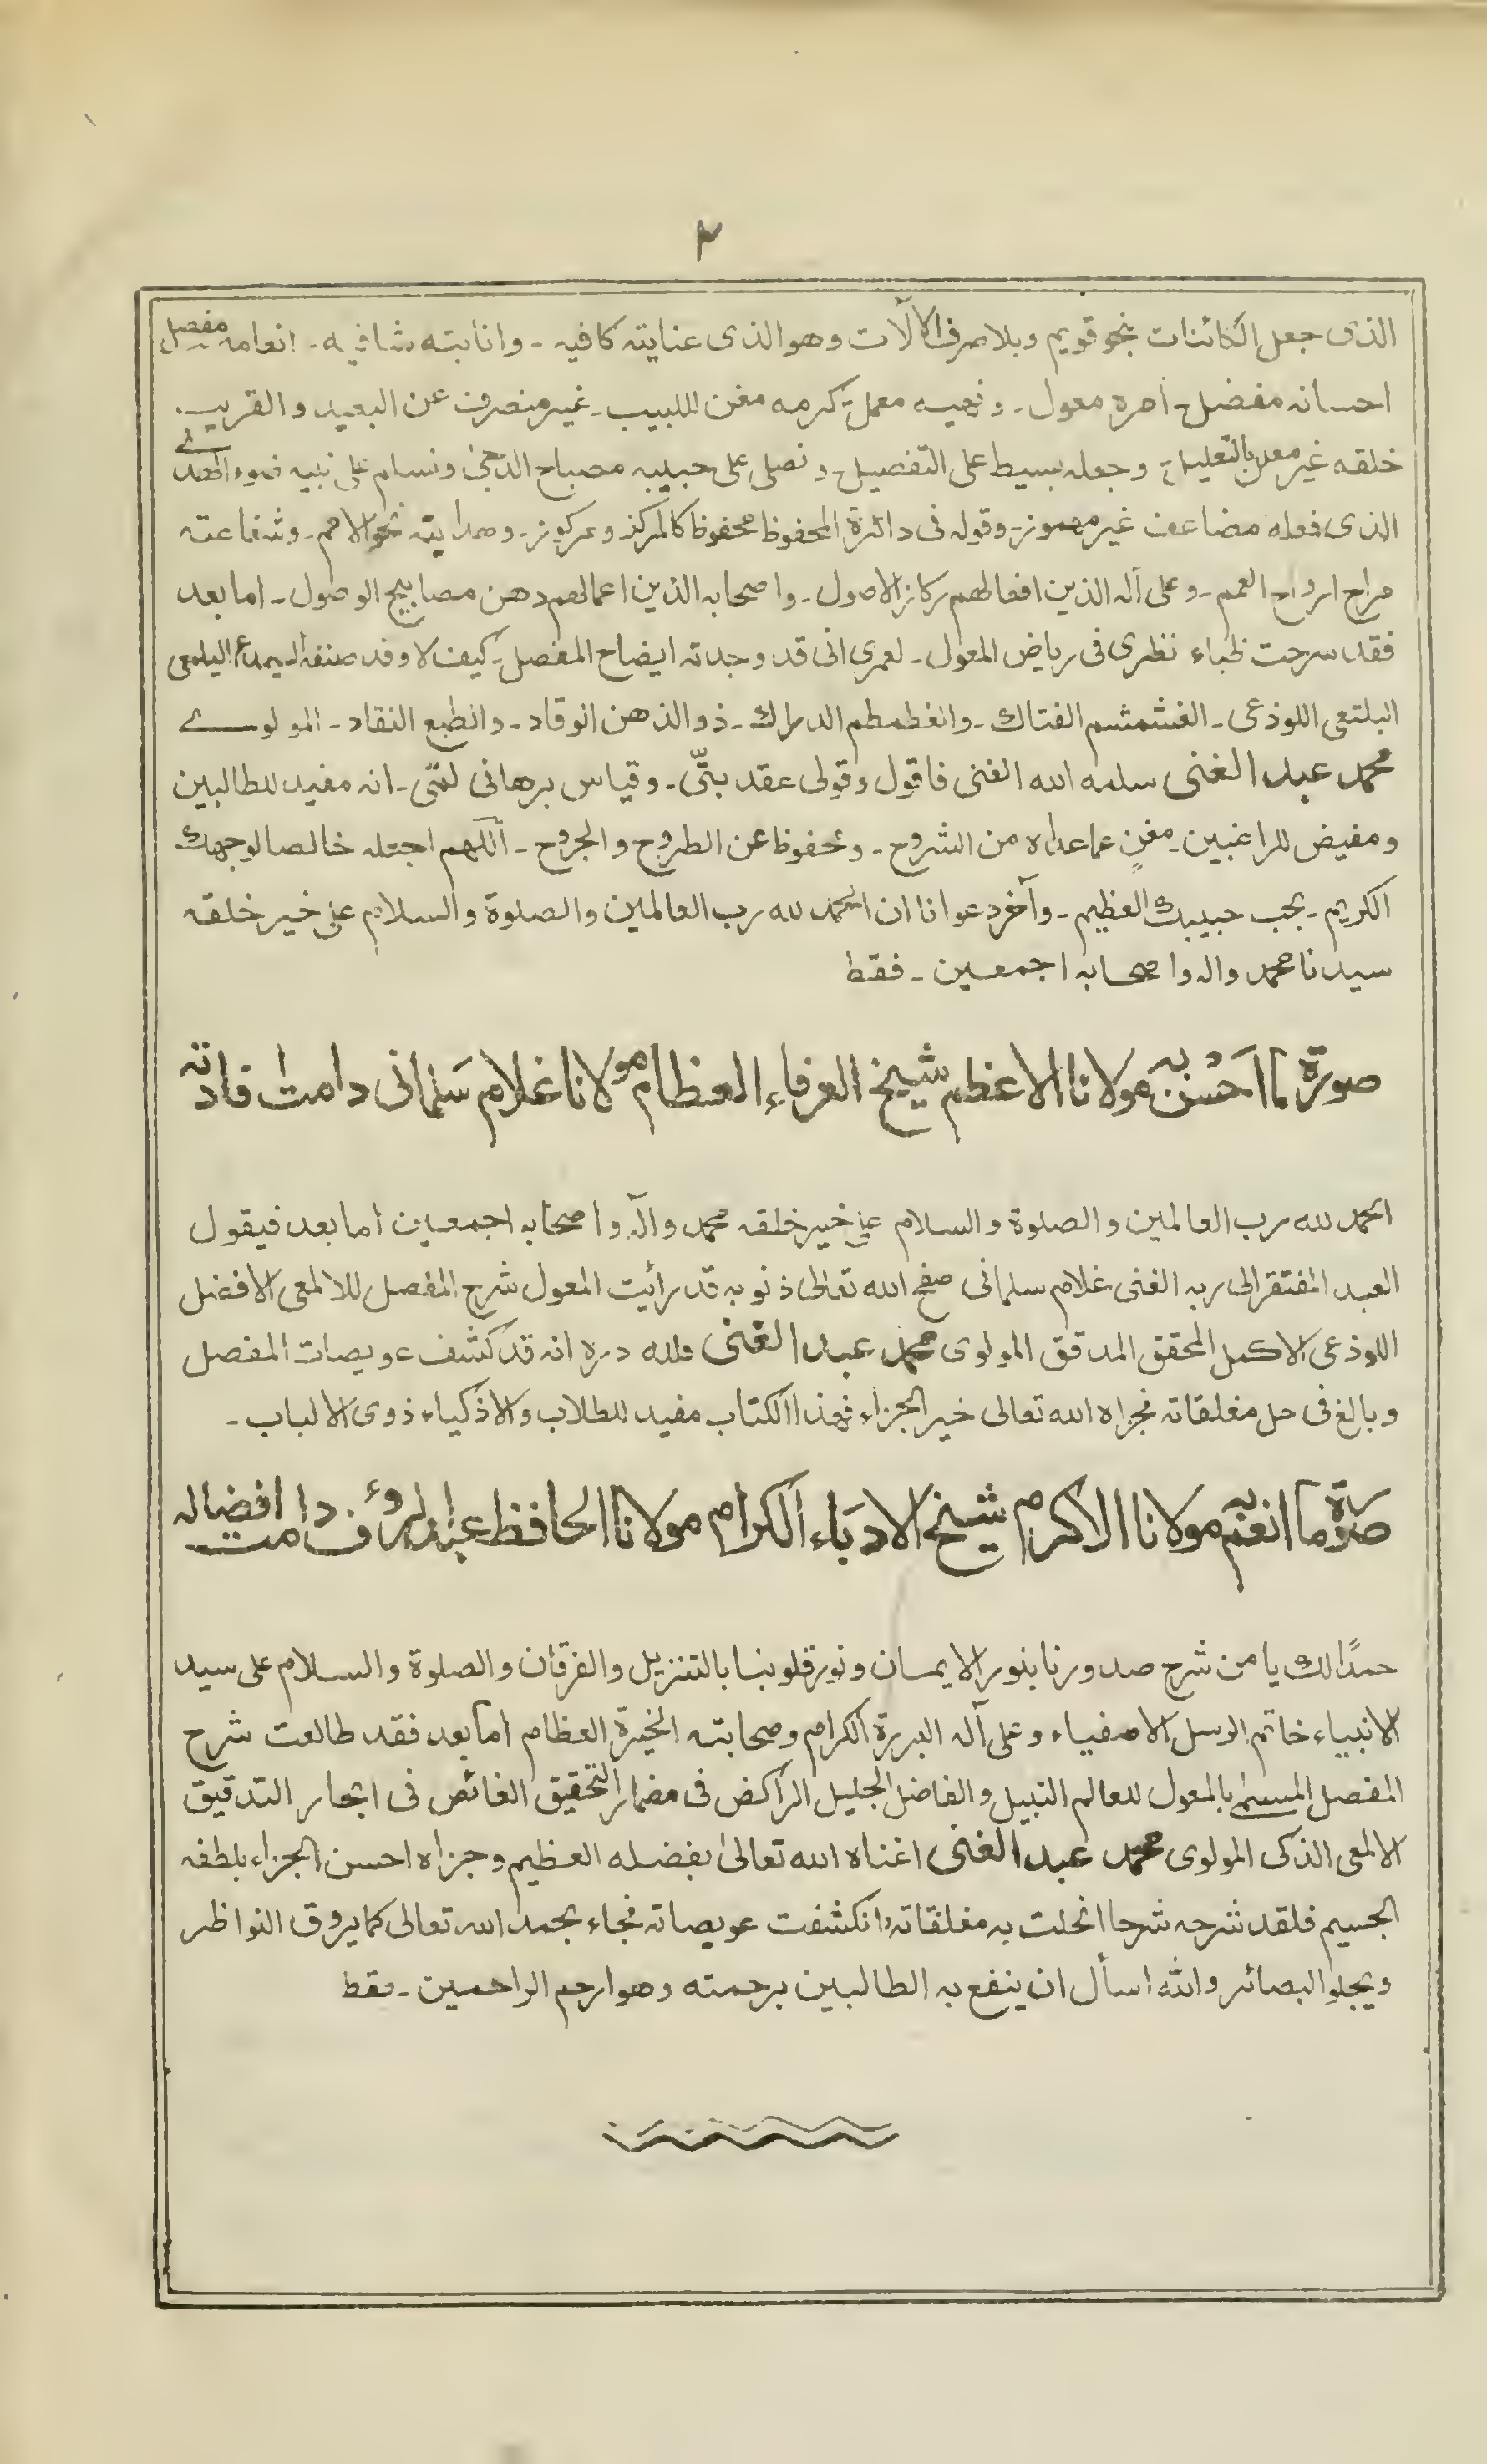 ٢
الذى جعل الكائنات بنحو قويم وبلا صرف الآلات وهو الذى عنايته كافيه ۔ وانابته شافيه ۔ انعامه مفصل
احسانه مفضل ۔ امره معول ۔ ونهيه معمل ۔ كرمه مغن للبيب ۔ غير منصرف عن البعيد والقريب
خلقه غير معلل بالتعليل ۔ وجعله بسيط على التفصيل ۔ ونصلى على حبيبه مصباح الدجى ونسلم على نبيه ضوء الهدے
الذى فعله مضاعف غير مهموز ۔ وقوله فى دائرة المحفوظ محفوظ كالمركز ومركوز ۔ وهدايته نحو الامم ۔ وشفاعته
مراح ارواح العمم ۔ وعلى آله الذين افعالهم ركاز الاصول ۔ واصحابه الذين اعمالهم دهن مصابيح الوصول ۔ اما بعد
فقد سرحت ظباء نظرى فى رياض المعول ۔ لعمرى انى قد وجدته ايضاح المفصل ۔ كيف لا وقد صنفه اليلمعى
البلتعى اللوذعى ۔ الغشمشم الفتاك ۔ والغطمطم الدراك ۔ ذو الذهن الوقاد ۔ والطبع النقاد ۔ المولوے
محمد عبد الغنى سلمه الله الغنى فاقول وقولى عقد بتّى ۔ وقياس برهانى لمّى ۔ انه مفيد للطالبين
ومفيض للراغبين ۔ مغنٍ عما عداه من الشروح ۔ ومحفوظ عن الطروح والجروح ۔ اللهم اجعله خالصا لوجهك
الكريم ۔ بحب حبيبك العظيم ۔ وآخر دعوانا ان الحمد لله رب العالمين والصلوة والسلام على خير خلقه
سيدنا محمد واله واصحابه اجمعين ۔ فقط
صورة ما احسن به مولانا الاعظم شيخ العرفاء العظام مولانا غلام سلمانى دامت افادته
الحمد لله رب العالمين والصلوة والسلام على خير خلقه محمد وآله واصحابه اجمعين اما بعد فيقول
العبد المفتقر الى ربه الغنى غلام سلمانى صفح الله تعالى ذنوبه قد رأيت المعول شرح المفصل للالمعى الافضل
اللوذعى الاكمل المحقق المدقق المولوى محمد عبد الغنى فلله دره انه قد كشف عويصات المفصل
وبالغ فى حل مغلقاته فجزاه الله تعالى خير الجزاء فهذا الكتاب مفيد للطلاب والاذكياء ذوى الالباب ۔
صورة ما انعم به مولانا الاكرم شيخ الادباء الكرام مولانا الحافظ عبد الروٴف دامت افضاله
حمدًا لك يا من شرح صدورنا بنور الايمان ونور قلوبنا بالتنزيل والفرقان والصلوة والسلام على سيد
الانبياء خاتم الرسل الاصفياء وعلى آله البررة الكرام وصحابته الخيرة العظام اما بعد فقد طالعت شرح
المفصل المسمى بالمعول للعالم النبيل والفاضل الجليل الراكض فى مضمار التحقيق الغائص فى ابحار التدقيق
الالمعى الذكى المولوى محمد عبد الغنى اغناه الله تعالى بفضله العظيم وجزاه احسن الجزاء بلطفه
الجسيم فلقد شرحه شرحا انحلت به مغلقاته وانكشفت عويصاته فجاء بحمد الله تعالى كما يروق النواظر
ويجلو البصائر والله اسأل ان ينفع به الطالبين برحمته وهو ارحم الراحمين ۔ فقط